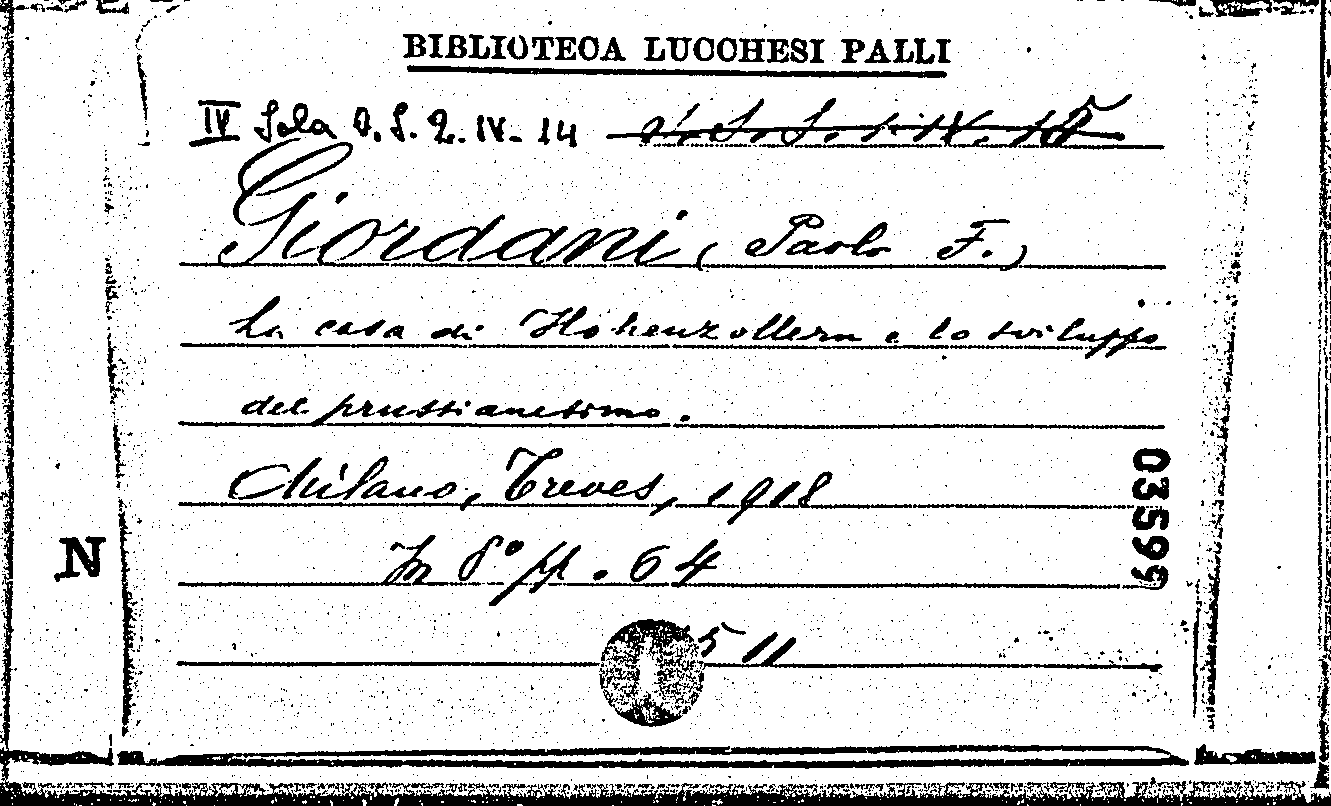 BIBLIOTECA LUCCHESI PALLI
IV Sala O.S. 2. IV. 14
Giordani (Paolo F.)
La casa di Hohenzollern e lo sviluppo
del prussianesimo.
Milano, Treves, 1918
In 8° pp. 64
03599
N